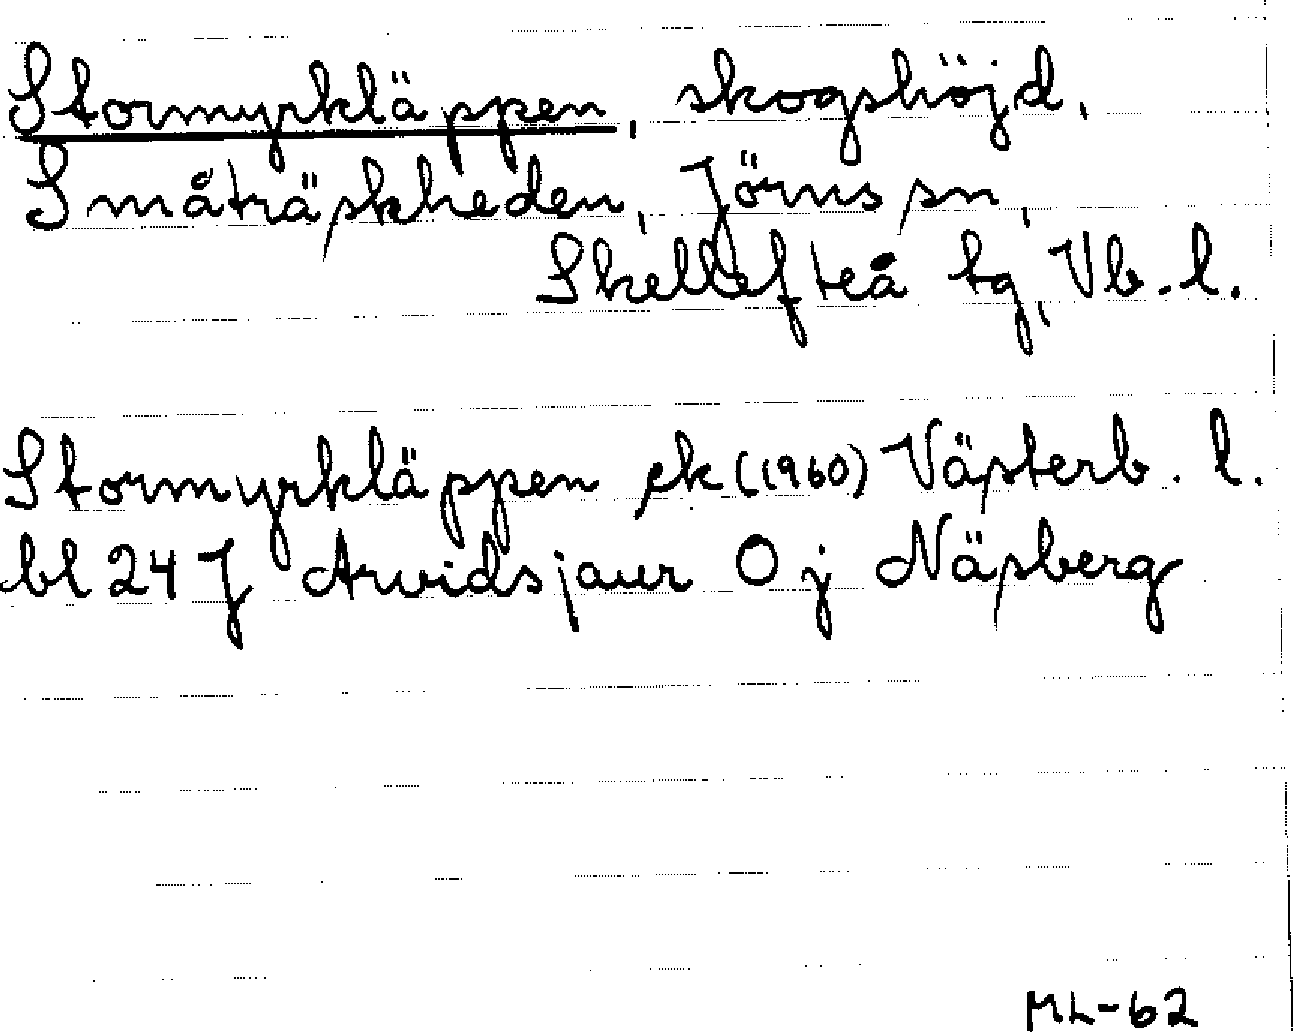 Stormyrkläppen, skogshöjd,
Småträskheden, Jörns sn,
Skellefteå tg, Vb. l.
Stormyrkläppen ek (1960) Västerb. l.
bl 24 J Arvidsjaur O j Näsberg
ML-62